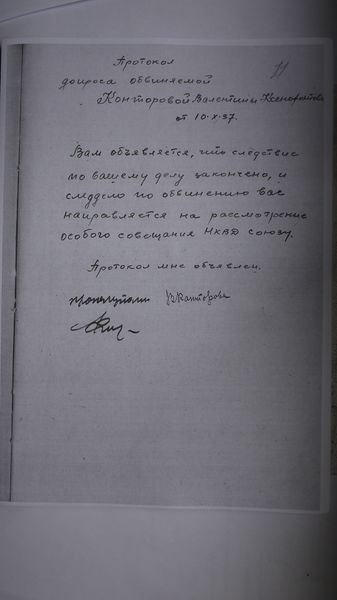 11
Протокол
допроса обвиняемой
Конторовой Валентины Ксенофонтовны
от 10.X.37.
Вам объявляется, что следствие
по вашему делу закончено, и
следдело по обвинению вас
направляется на рассмотрение
особого совещания НКВД союзу.
Протокол мне объявлен.
ВКанторова